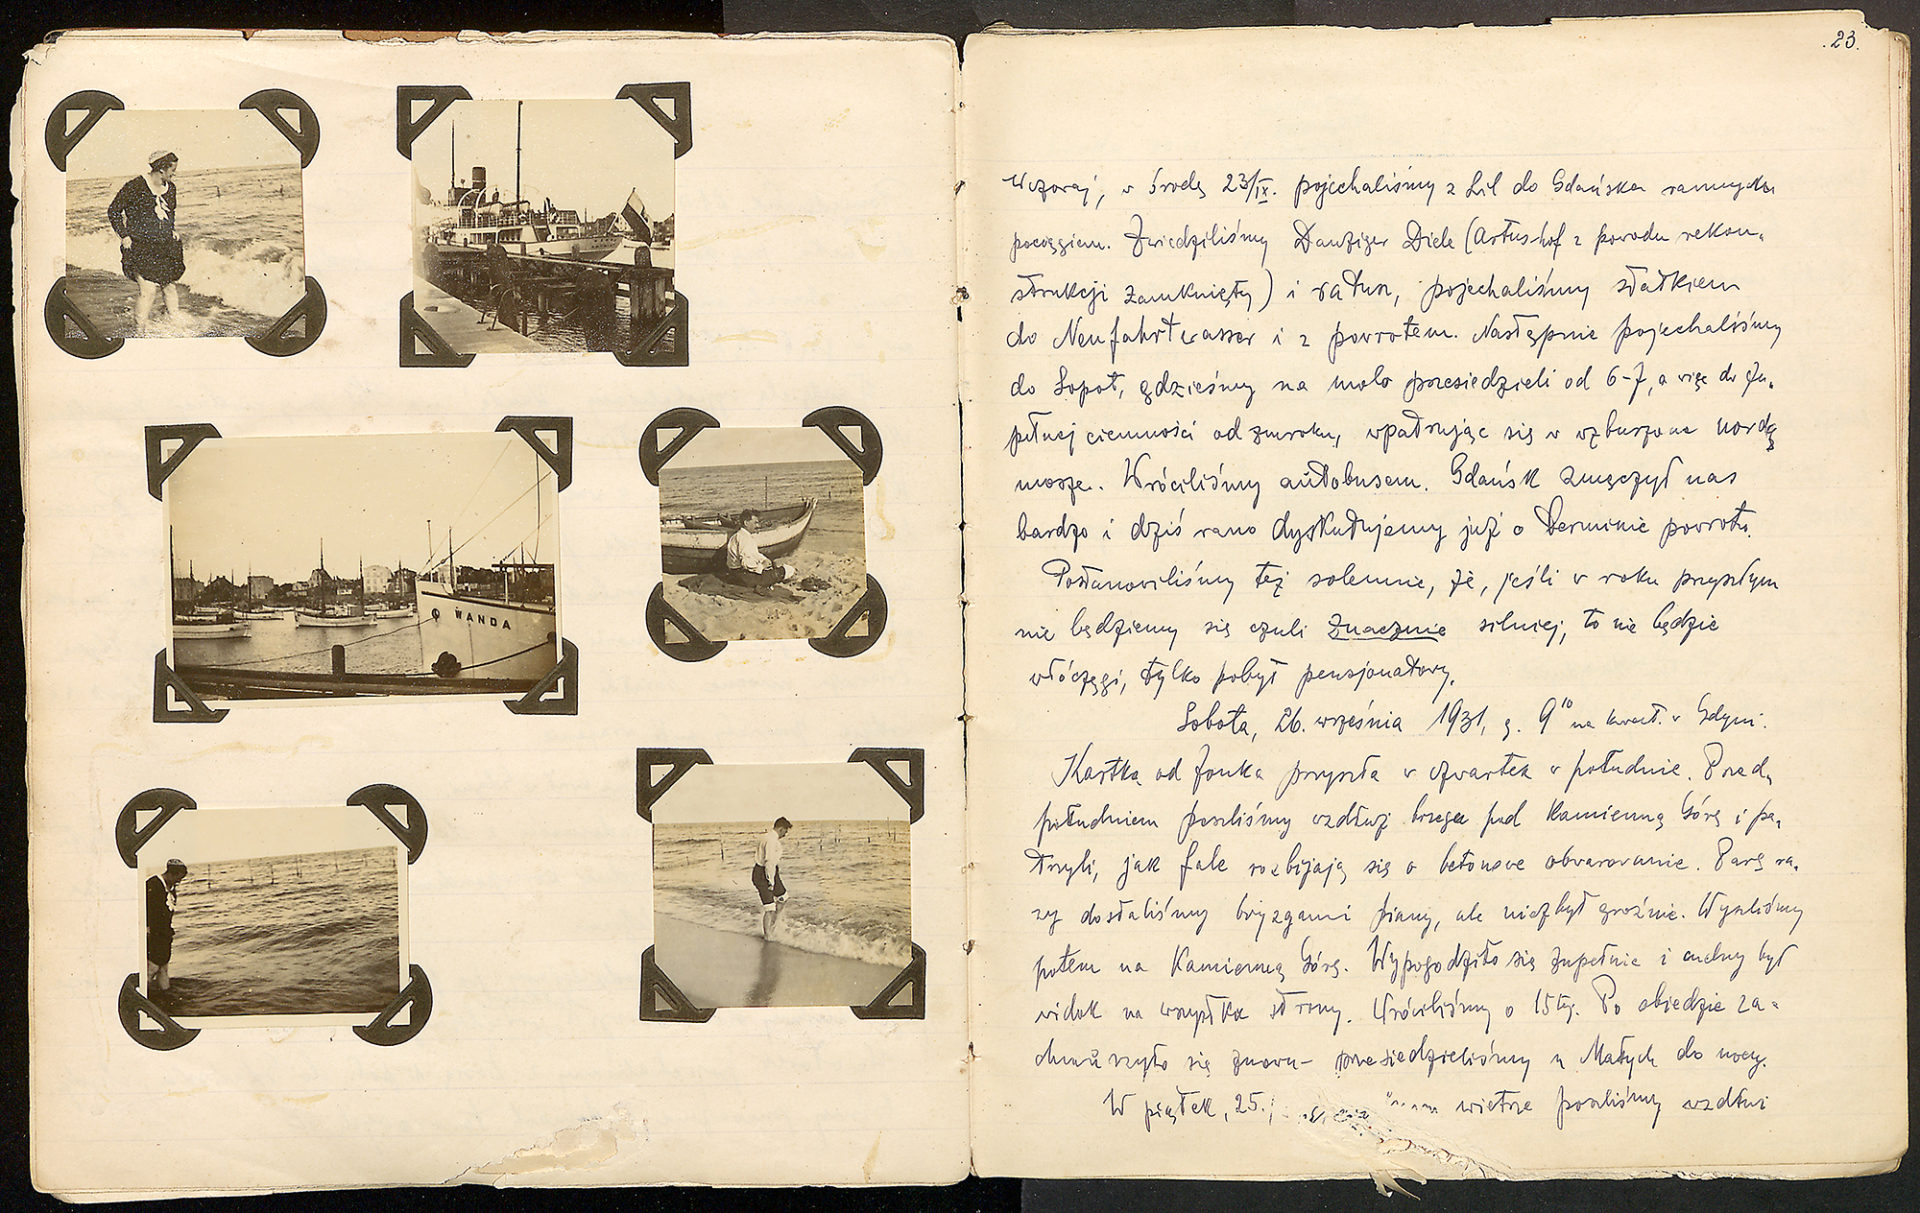 WANDA
.23.
Wczoraj, w środę 23/IX. pojechaliśmy z Lil do Gdańska rannym
pociągiem. Zwiedziliśmy Danziger Diele (Artushof z powodu rekon-
strukcji zamknięty) i ratusz, pojechaliśmy statkiem
do Neufahrwasser i z powrotem. Następnie pojechaliśmy
do Sopot, gdzieśmy na molo przesiedzieli od 6-7, a więc do zu-
pełnej ciemności od zmroku, wpatrując się w wzburzone
morze. Wróciliśmy autobusem. Gdańsk zmęczył nas
bardzo i dziś rano dyskutujemy już o terminie powrotu.
Postanowiliśmy też solennie, że, jeśli w roku przyszłym
nie będziemy się czuli znacznie silniej, to nie będzie
włóczęgi, tylko pobyt pensjonatowy.
Sobota, 26. września 1931, g. 9¹⁰ na kwat. w Gdyni.
Kartka od Jonka przyszła w czwartek w południe. Przed
południem poszliśmy wzdłuż brzegu pod Kamienną Górę i pa-
trzyli, jak fale rozbijają się o betonowe obwarowanie. Parę ra-
zy dostaliśmy bryzgami piany, ale niezbyt groźnie. Wyszliśmy
potem na Kamienną Górę. Wypogodziło się zupełnie i cudny był
widok na wszystkie strony. Wróciliśmy o 15tej. Po obiedzie za-
chmurzyło się znowu - przesiedzieliśmy u Małych do nocy.
W piątek, 25. wietrze poszliśmy wzdłuż